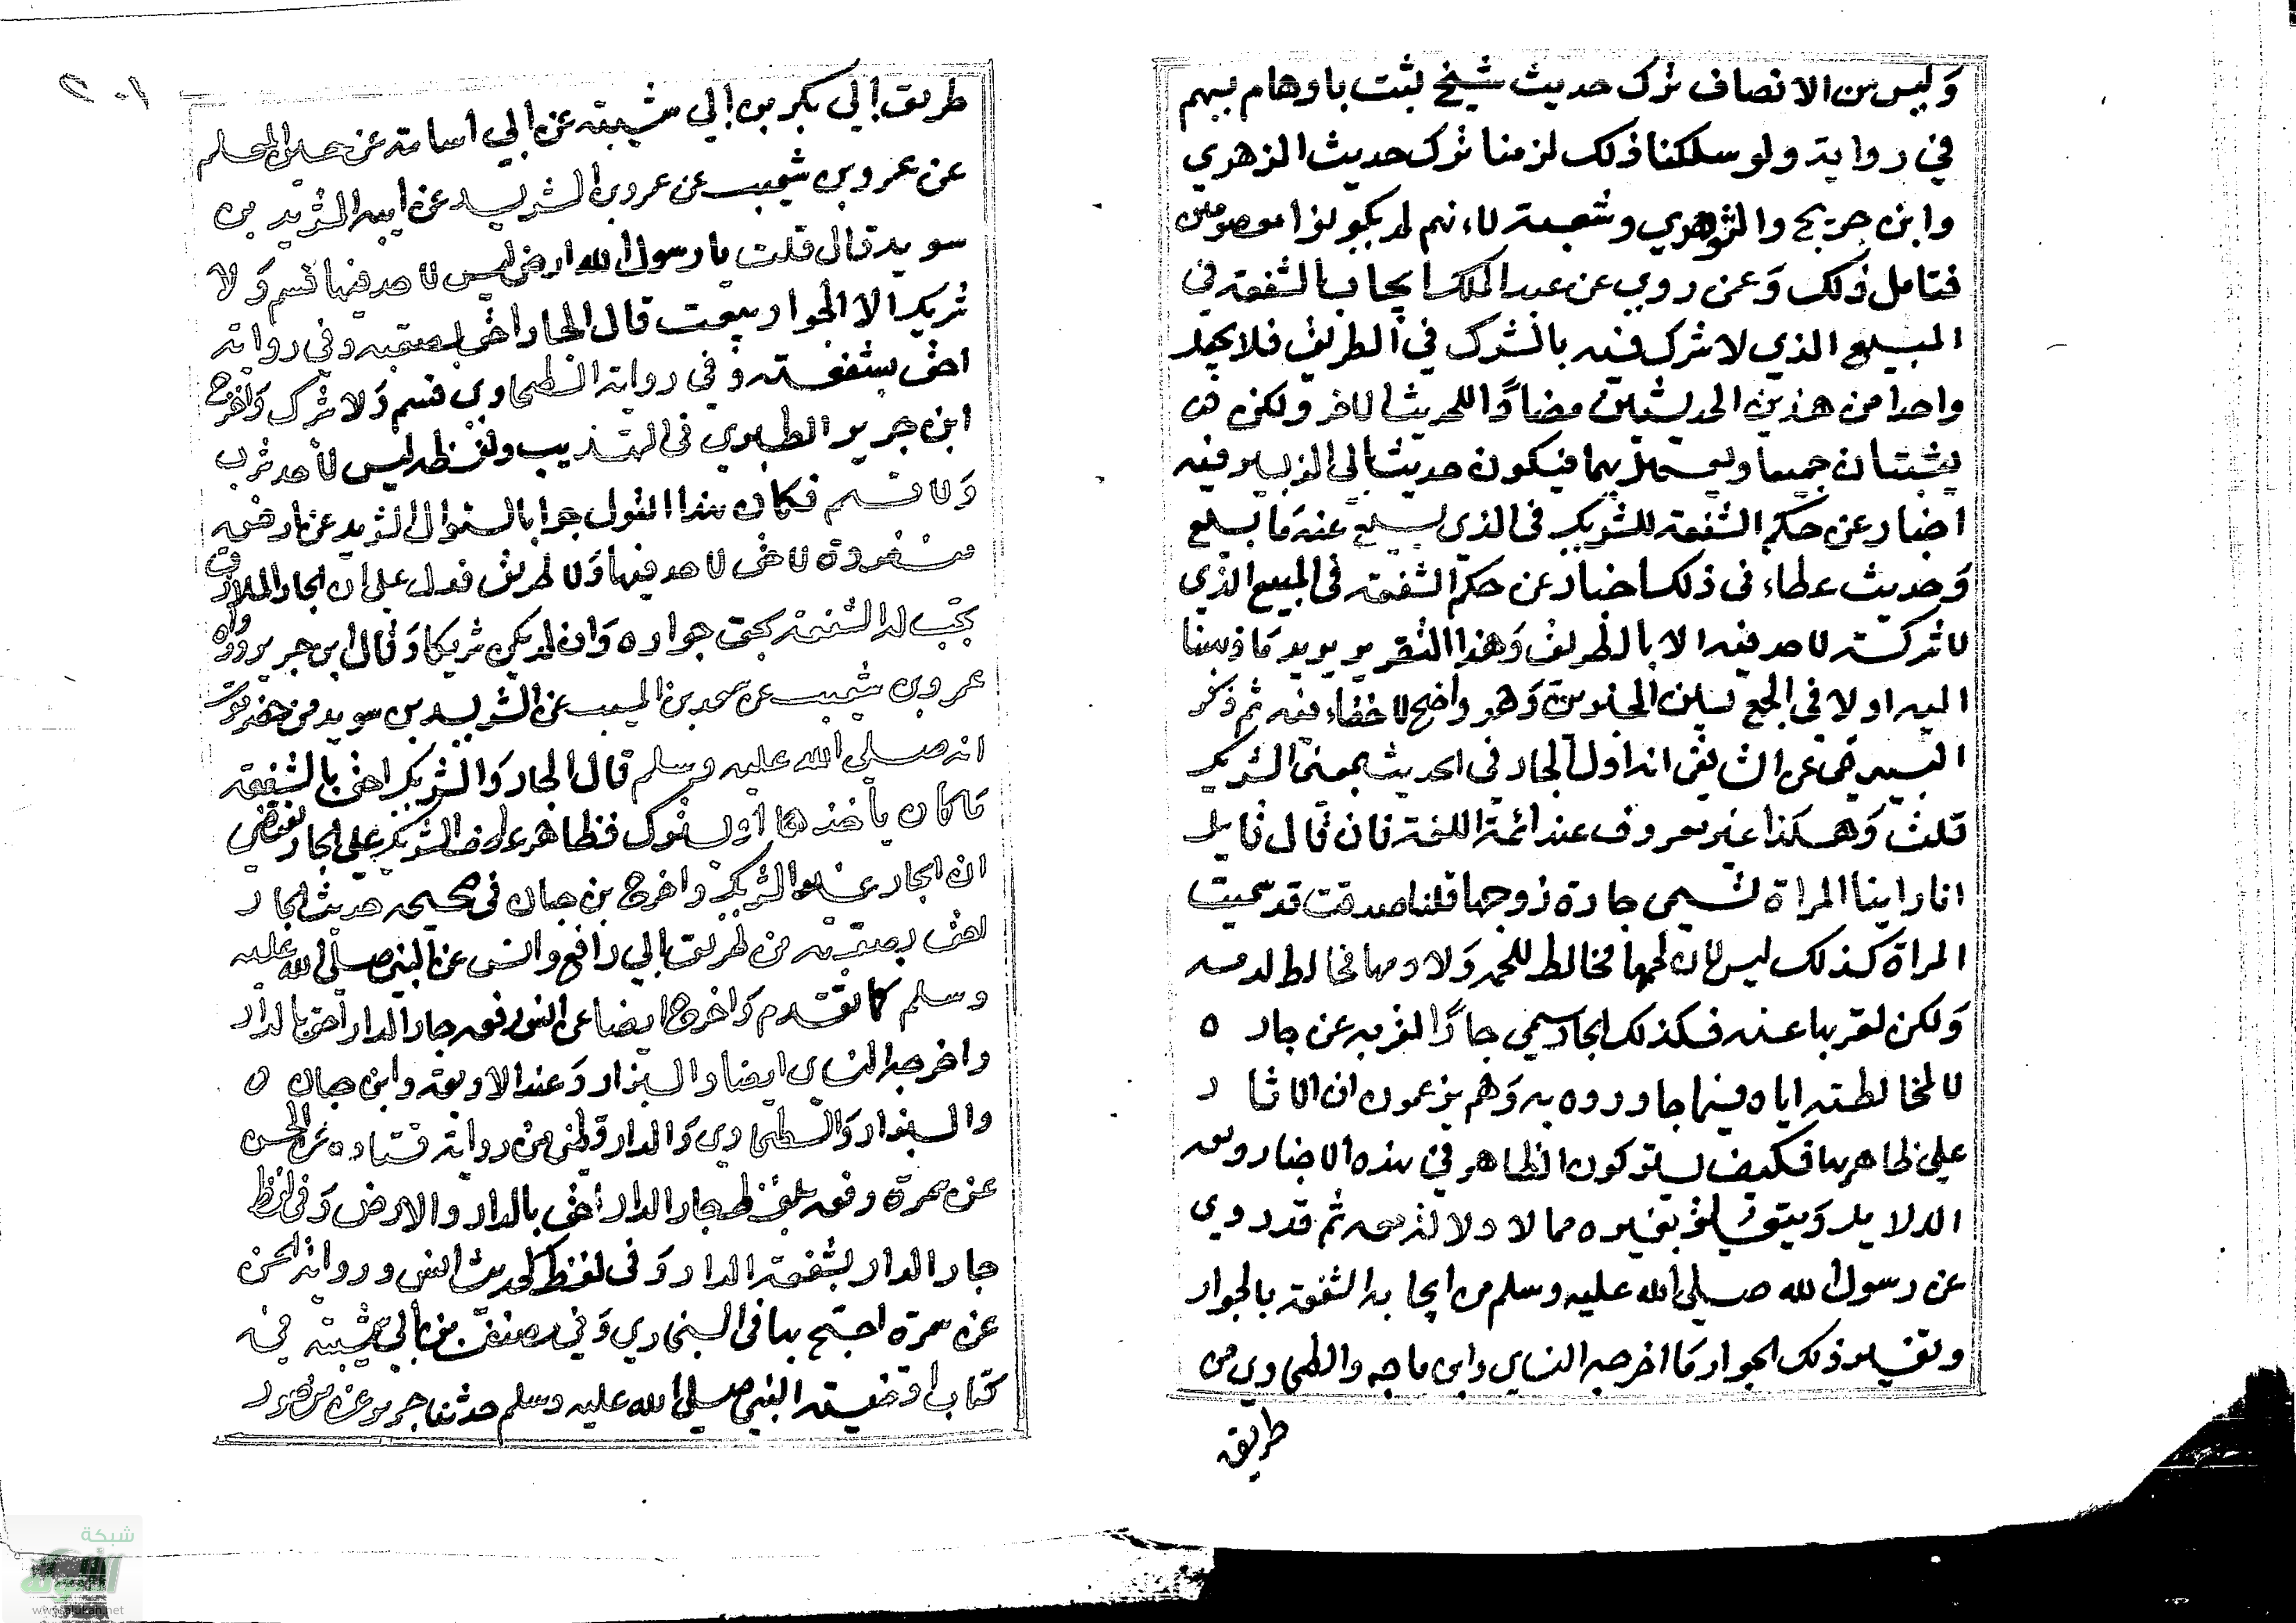 وليس من الانصاف ترك حديث شيخ ثبت باوهام يهم
في رواية ولو سلكنا ذلك لزمنا ترك حديث الزهري
وابن جريج والثوري وشعبة لانهم لم يكونوا معصومين
فتامل ذلك وعن روي عن عبد الملك ايجاب الشفعة في
المبيع الذي لا شرك فيه بالشرك في الطريق فلا يجعل
واحدا من هذين الحديثين مضادا للحديث الاخر ولكن
يثبتان جميعا ويعمل بهما فيكون حديث ابي الزبير فيه
اخبار عن حكم الشفعة للشريك في الذي بيع عنه ما بيع
وحديث عطاء في ذلك اخبار عن حكم الشفعة في المبيع الذي
لا شركة لاحد فيه الا بالطريق وهذا التقرير يويد ما ذهبنا
اليه اولا في الجمع بين الحديثين وهو واضح لا خفاء فيه ثم ذكر
البيهقي عن الشافعي انه اول الجار في الحديث بمعنى الشريك
قلت وهكذا غير معروف عند ائمة اللغة فان قال قايل
انا راينا المراة تسمى جارة زوجها قلنا صدقت قد سميت
المراة كذلك ليس لان لحمها مخالط للحمه ولا دمها مخالط لدمه
ولكن لقربها عنه فكذلك الجار سمي جارا لقربه عن جاره
لا لمخالطته اياه فيما جاوروه به وهم يزعمون ان الاثار
على ظاهرها فكيف يتركون الظاهر في هذه الاخبار ومعه
الدلايل ويتعلق بغيره مما لا دلالة معه ثم قد روي
عن رسول الله صلى الله عليه وسلم من ايجابه الشفعة بالجوار
وتفسير ذلك الجوار ما اخرجه النساي وابن ماجه والطحاوي من
طريق
٢٠١
طريق ابي بكر بن ابي شيبة عن ابي اسامة عن حسين المعلم
عن عمرو بن شعيب عن عمرو بن الشريد عن ابيه الشريد بن
سويد قال قلت يا رسول الله ارض ليس لاحد فيها قسم ولا
شريك الا الجوار بيعت قال الجار احق بصقبه وفي رواية
احق بشفعته وفي رواية الطحاوي قسم ولا شرك واخرج
ابن جرير الطبري في التهذيب ولفظه ليس لاحد شرب
ولا قسم فكان هذا القول جوابا لسؤال الشريد عن ارض
منفردة لا حق لاحد فيها ولا طريق فدل على ان الجار الملازق
تجب له الشفعة بحق جواره وان لم يكن شريكا وقال ابن جرير رواه
عمرو بن شعيب عن سعيد بن المسيب عن الشريد بن سويد من حضرموت
انه صلى الله عليه وسلم قال الجار والشريك احق بالشفعة
ما كان ياخذها او يترك فظاهر عطف الشريك على الجار يقتضي
ان الجار غير الشريك واخرج بن حبان في صحيحه حديث الجار
احق بصقبه من طريق ابي رافع وانس عن النبي صلى الله عليه
وسلم كما تقدم واخرج ايضا عن انس رفعه جار الدار احق بالدار
واخرجه النساي ايضا والبزار وعند الاربعة وابن حبان
والبزار والطحاوي والدارقطني من رواية قتادة عن الحسن
عن سمرة رفعه بلفظ جار الدار احق بالدار والارض وفي لفظ
جار الدار بشفعة الدار وفي لفظ كحديث انس ورواية الحسن
عن سمرة احتج بها في البخاري وفي مصنف بن ابي شيبة في
كتاب اقضية النبي صلى الله عليه وسلم حدثنا جرير عن منصور
شبكة
الألوكة
www.alukah.net